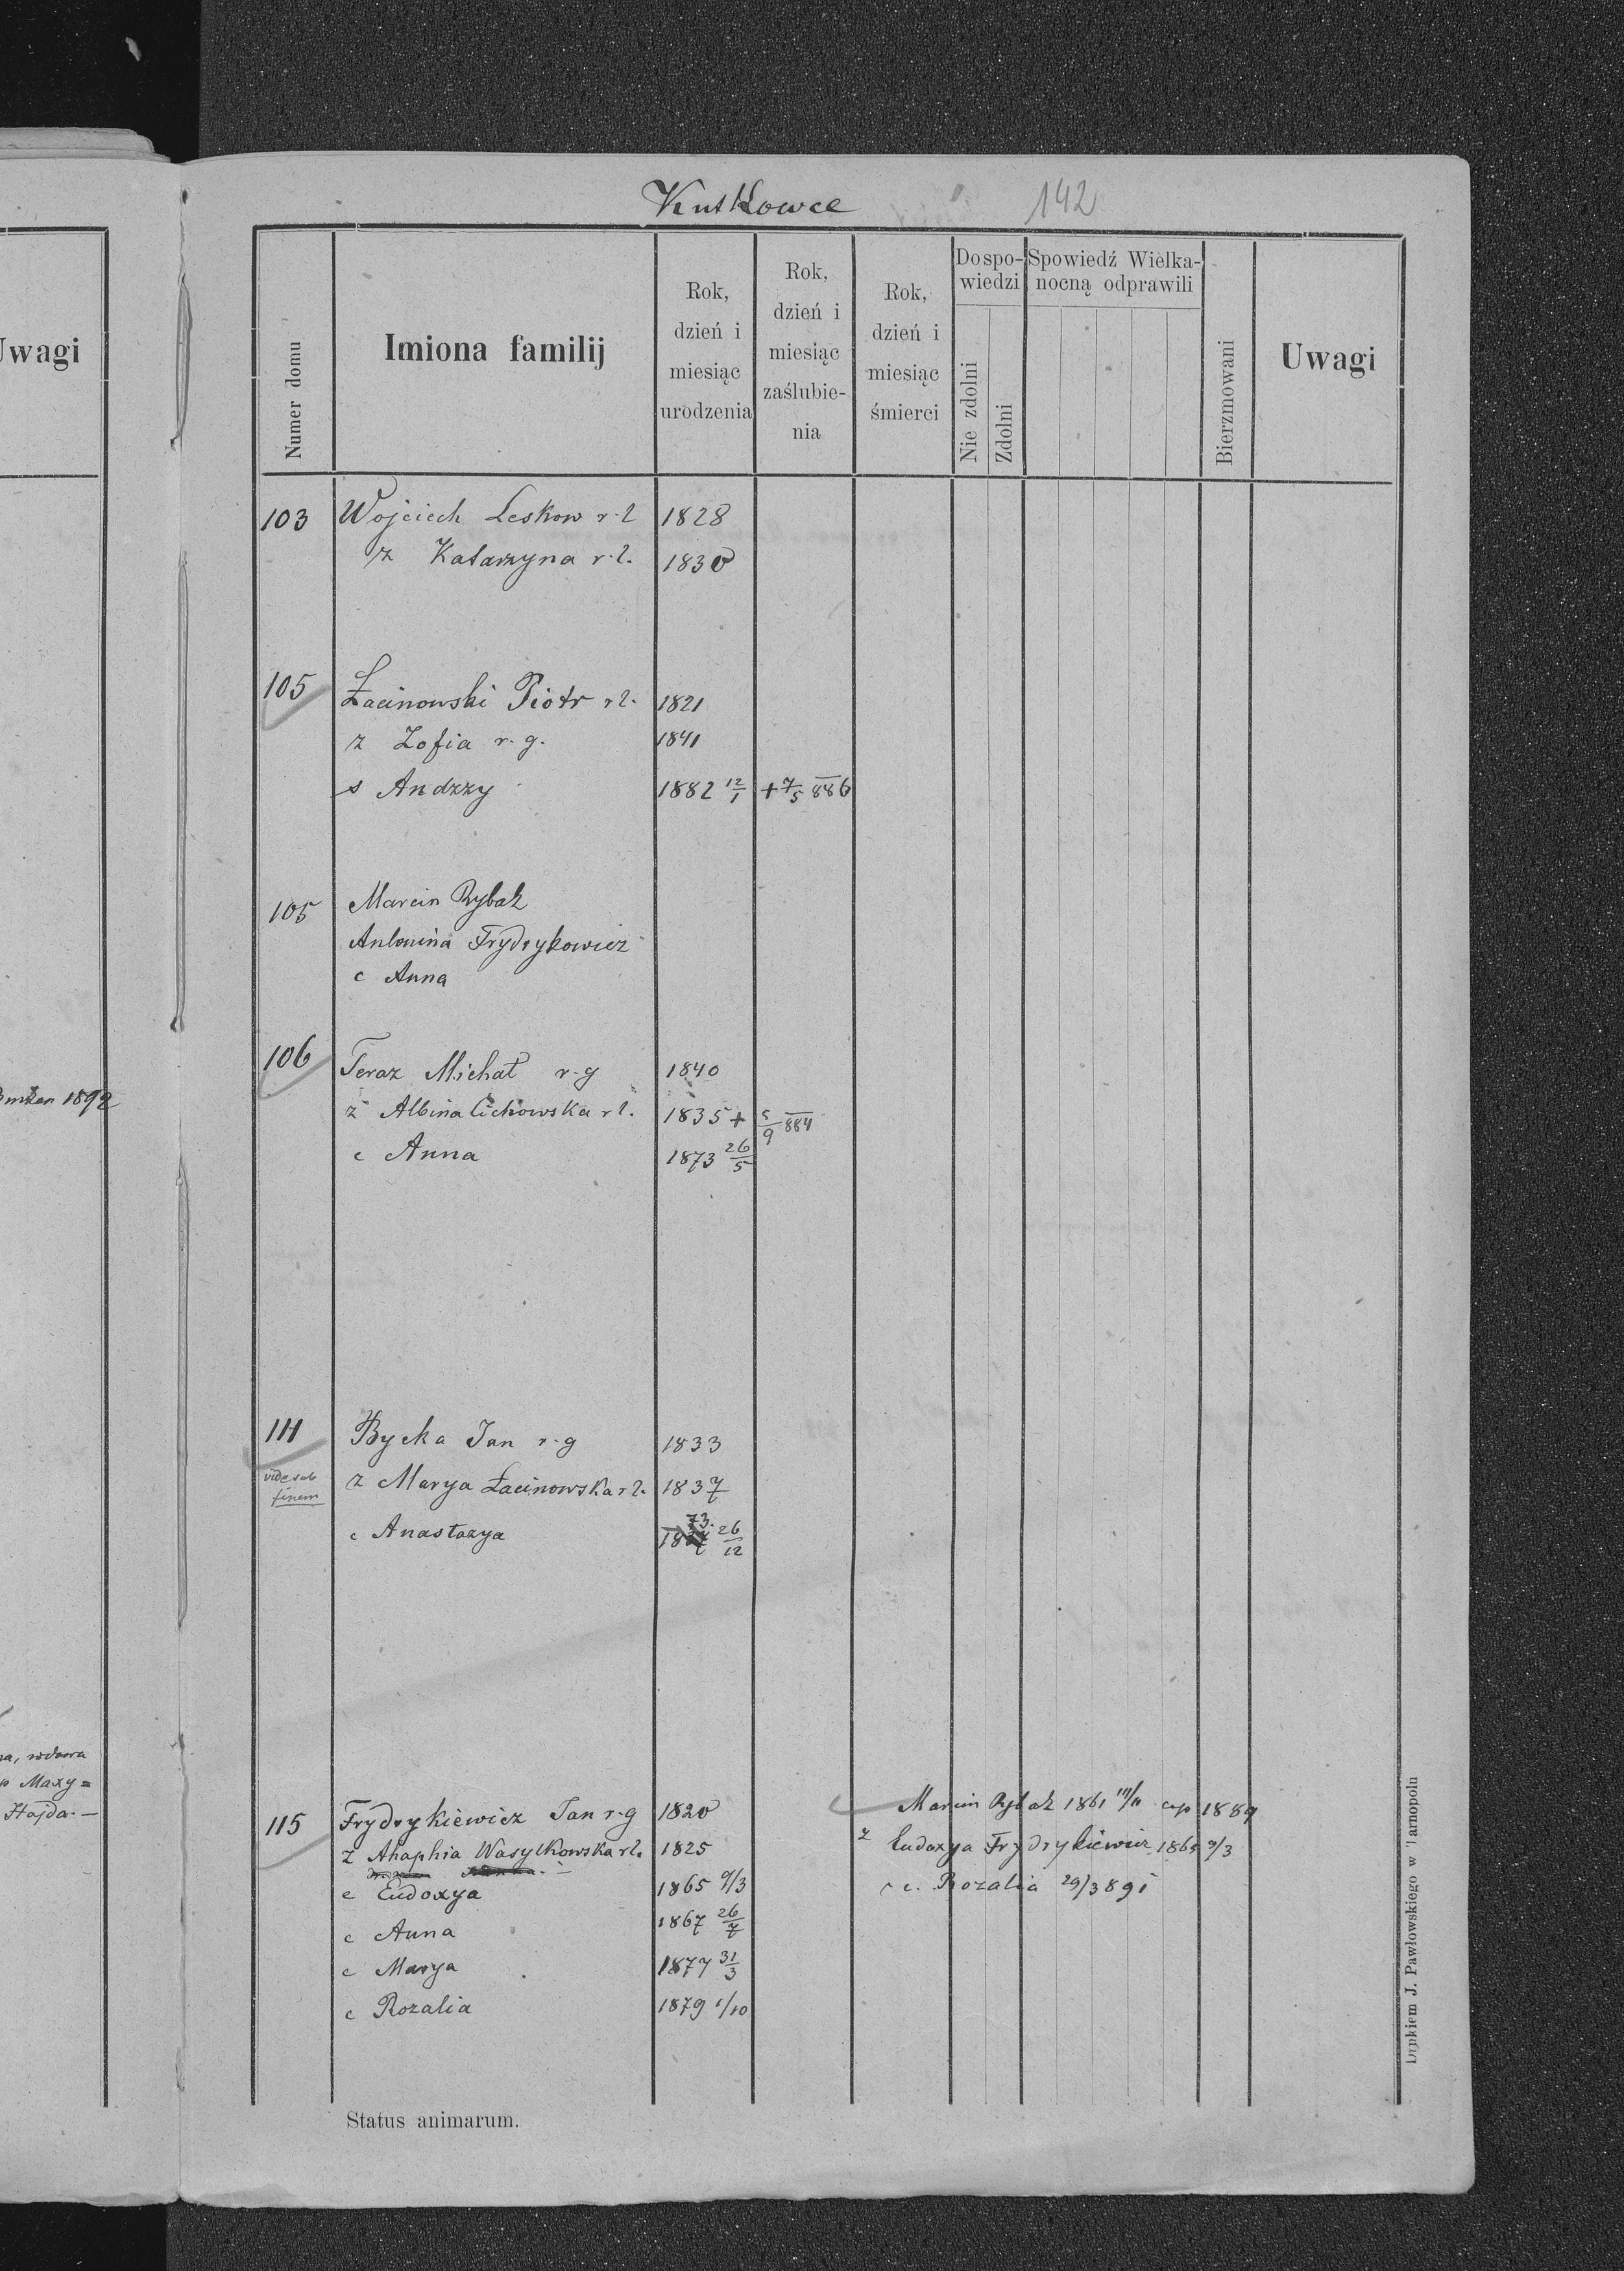 Kutkowce 142
Numer domu
Imiona familij
Rok, dzień i miesiąc urodzenia
Rok, dzień i miesiąc zaślubie-nia
Rok, dzień i miesiąc śmierci
Do spo-wiedzi
Nie zdolni
Zdolni
Spowiedź Wielka-nocną odprawili
Bierzmowani
Uwagi
103 Wojciech Leskow r. l 1828
ż Katarzyna r. l. 1830
105 Łacinowski Piotr r l. 1821
ż Zofia r. g. 1841
s Andrzy 1882 12/1 + 7/5 886
105 Marcin Rybak
Antonina Frydrykowicz
c Anna
106 Teraz Michał r. g 1840
ż Albina Cichowska r l. 1835 + 5/9 884
c Anna 1873 26/5
111 Bycka Jan r. g 1833
vide sub finem
ż Marya Łacinowska r l. 1837
c Anastazya 1873. 26/12
115 Frydrykiewicz Jan r. g 1820
ż Ahaphia Wasylkowska r l. 1825
c Eudoxya 1865 9/3
c Anna 1867 26/7
c Marya 1877 31/3
c Rozalia 1879 1/10
Marcin Rybak 1861 11/11 cop 1889
ż Eudoxya Frydrykiewicz 1865 9/3
c. Rozalia 29/3 891
Status animarum.
Drukiem J. Pawłowskiego w Tarnopolu
Uwagi
1892
wdowa
Maxy=
Hajda. —